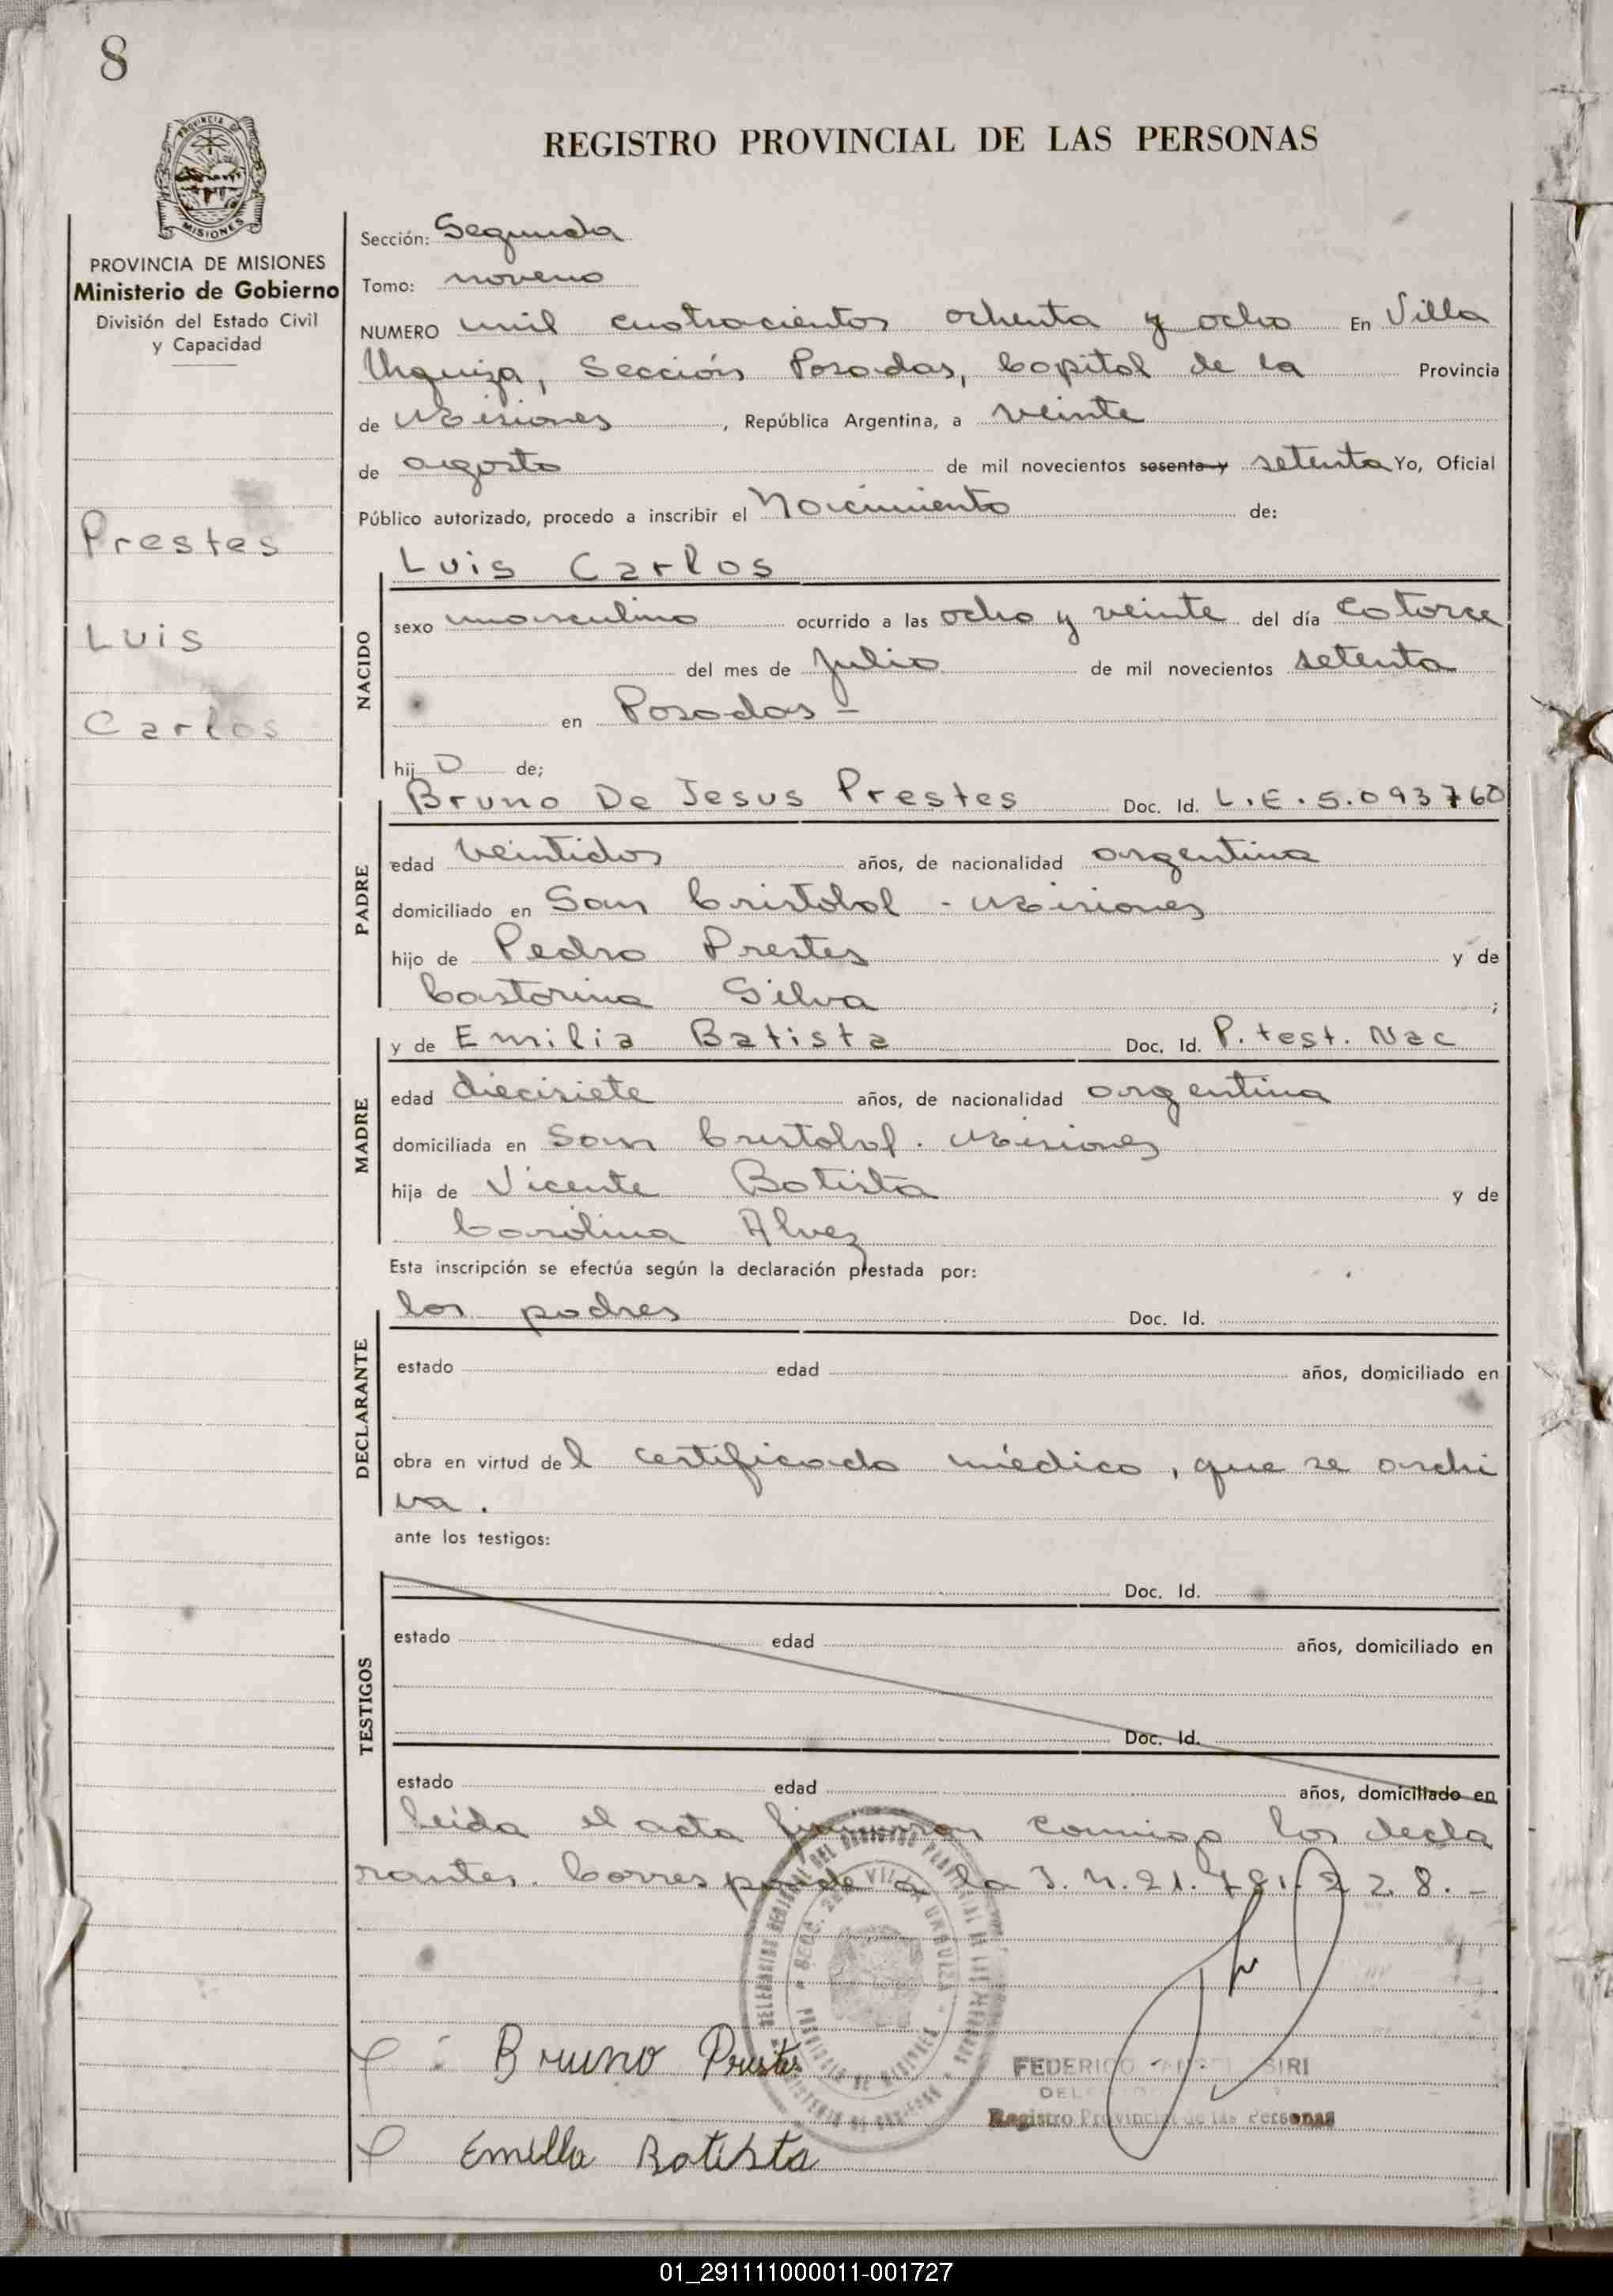 8
PROVINCIA DE
MISIONES
REGISTRO PROVINCIAL DE LAS PERSONAS
PROVINCIA DE MISIONES
Ministerio de Gobierno
División del Estado Civil
y Capacidad
Prestes
Luis
Carlos
Sección: Segunda
Tomo: noveno
NUMERO mil cuatrocientos ochenta y ocho En Villa
Urquiza, Sección Posadas, Capital de la Provincia
de Misiones, República Argentina, a veinte
de agosto de mil novecientos sesenta y setenta Yo, Oficial
Público autorizado, procedo a inscribir el Nacimiento de:
Luis Carlos
NACIDO
sexo masculino ocurrido a las ocho y veinte del día catorce
del mes de julio de mil novecientos setenta
en Posadas -
hijo de;
PADRE
Bruno De Jesus Prestes Doc. Id. L.E. 5.093760
edad veintidos años, de nacionalidad argentina
domiciliado en San Cristobal - Misiones
hijo de Pedro Prestes y de
Castorina Silva ;
MADRE
y de Emilia Batista Doc. Id. P. test. Nac
edad diecisiete años, de nacionalidad argentina
domiciliada en San Cristobal. Misiones
hija de Vicente Batista y de
Carolina Alvez
Esta inscripción se efectúa según la declaración prestada por:
DECLARANTE
los padres Doc. Id.
estado edad años, domiciliado en
obra en virtud del certificado médico, que se archi
va.
ante los testigos:
TESTIGOS
Doc. Id.
estado edad años, domiciliado en
Doc. Id.
estado edad años, domiciliado en
Leída el acta firmaron conmigo los decla
rantes. Corresponde a la
Bruno Prestes
FEDERICO SIRI
Registro Provincial de las Personas
Emilia Batista
01_291111000011-001727